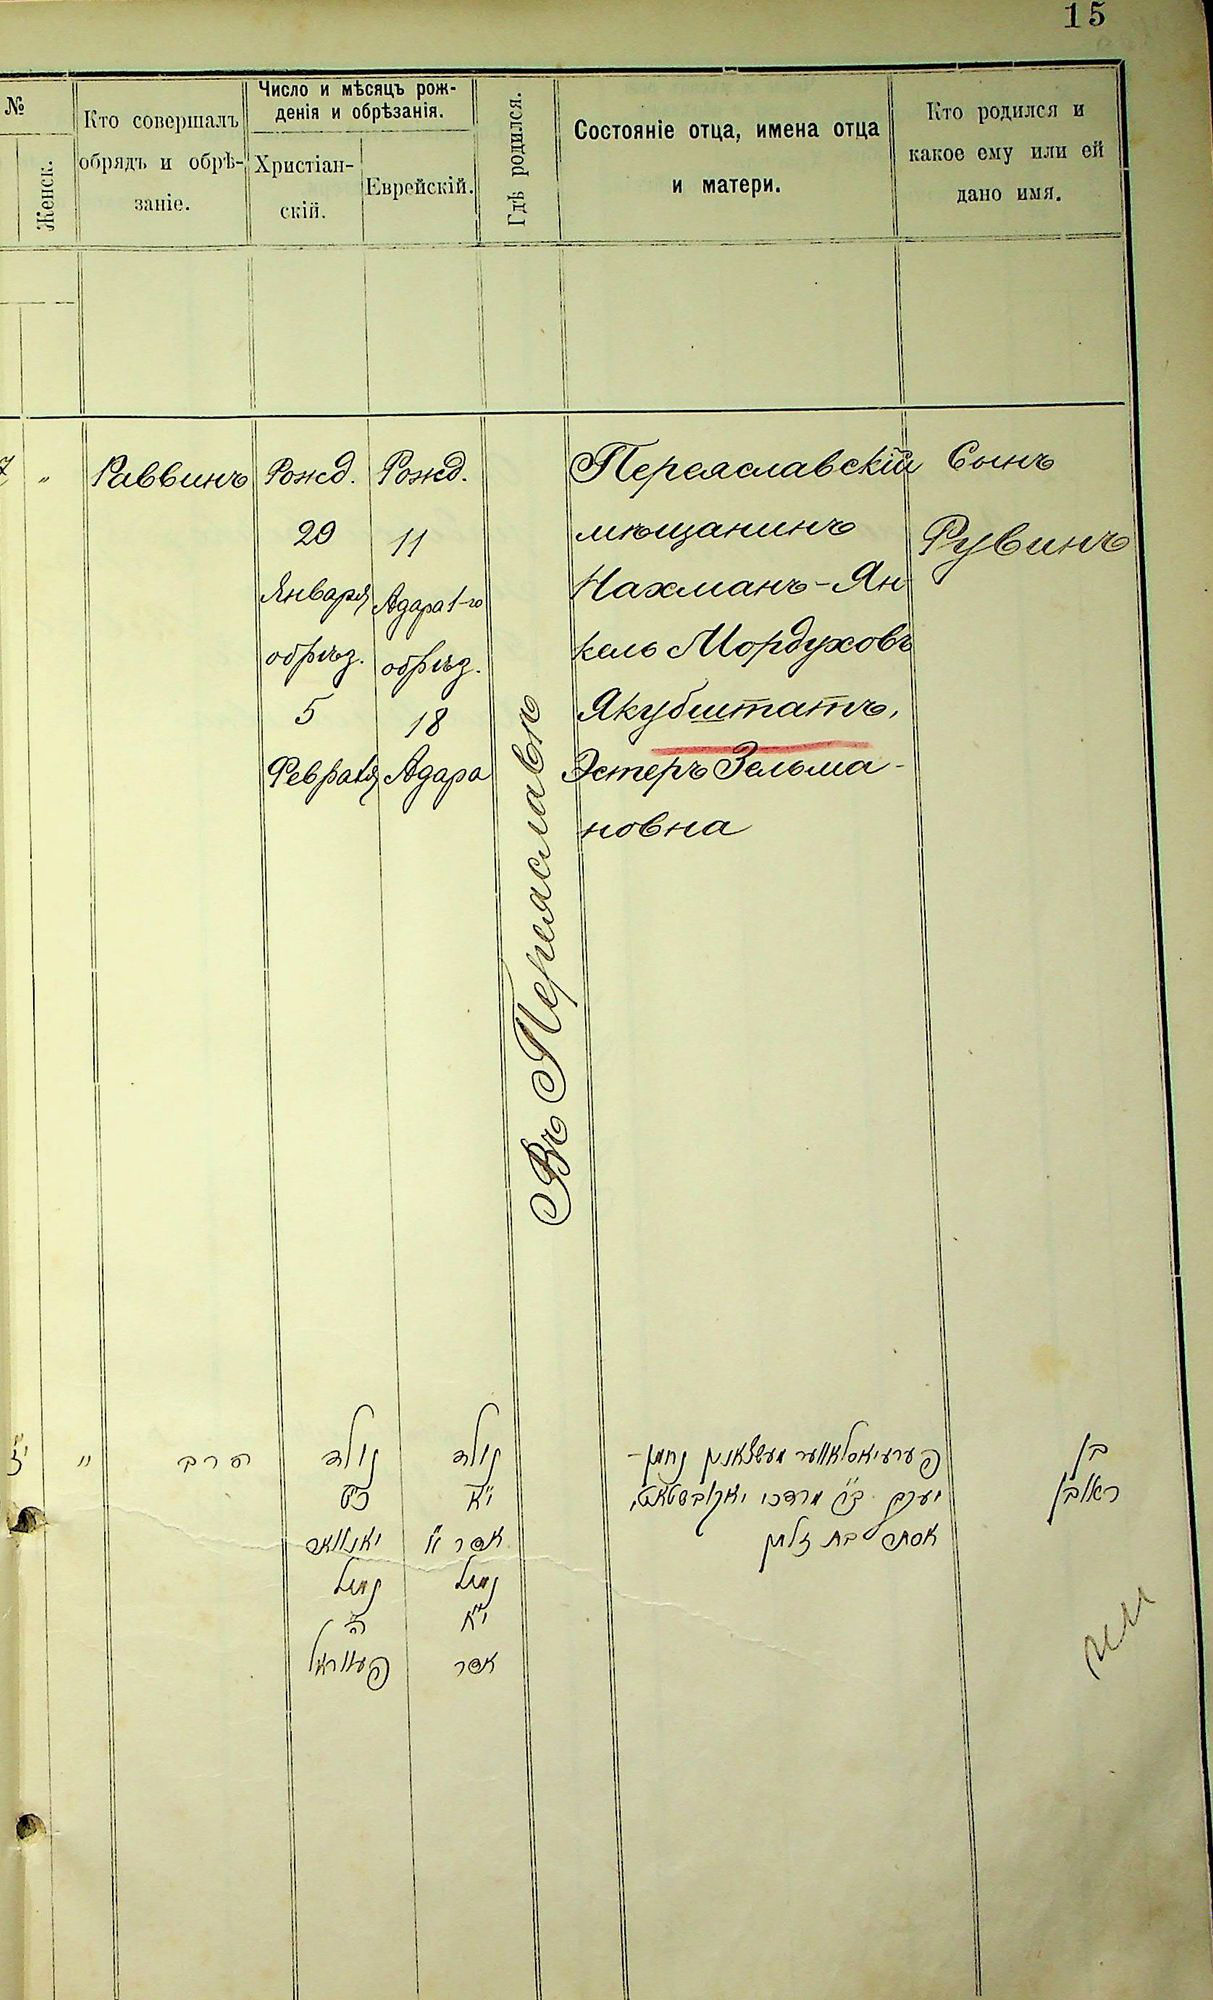 15
№
Женск.
Кто совершалъ
обрядъ и обрѣ-
заніе.
Число и мѣсяцъ рож-
денія и обрѣзанія.
Христіан-
скій.
Еврейскій.
Гдѣ родился.
Состояніе отца, имена отца
и матери.
Кто родился и
какое ему или ей
дано имя.
7
"
Раввинъ
Рожд.
29
Января
обрѣз.
5
Февраля
Рожд.
11
Адара 1-го
обрѣз.
18
Адара
Въ Переяславѣ
Переяславскій
мѣщанинъ
Нахманъ-Ян-
кель Мордуховъ
Якубштатъ,
Эстеръ Зельма-
новна
Сынъ
Рувинъ
"
הרב
נולד
כ"ט
יאנואר
נימול
ה'
פעווראל
נולד
י"א
אדר
נימול
י"ח
אדר
פערעיאסלאווער מעשצאנין נחמן-
יעקב מרדכי יאקובשטאט,
אסתר בת זלמן
בן
ראובן